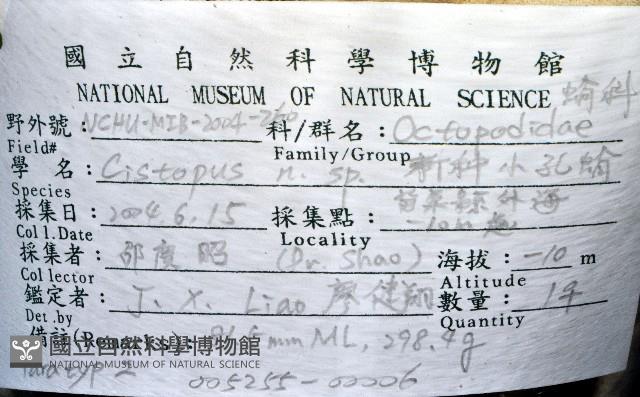 國立自然科學博物館
NATIONAL MUSEUM OF NATURAL SCIENCE 蛸科
野外號: NCHU-MIB-2004-260 科/群名: Octopodidae
Field# Family/Group
學名: Cistopus n. sp. 新種 小孔蛸
Species 苗栗縣外海
採集日: 2004.6.15 採集點: -10m
Coll.Date Locality
採集者: 邵廣昭 (Dr. Shao) 海拔: -10 m
Collector Altitude
鑑定者: J. X. Liao 廖健翔 數量: 1♀
Det.by Quantity
備註(Remarks): mm ML, 298.4g
國立自然科學博物館
NATIONAL MUSEUM OF NATURAL SCIENCE
005255-00006